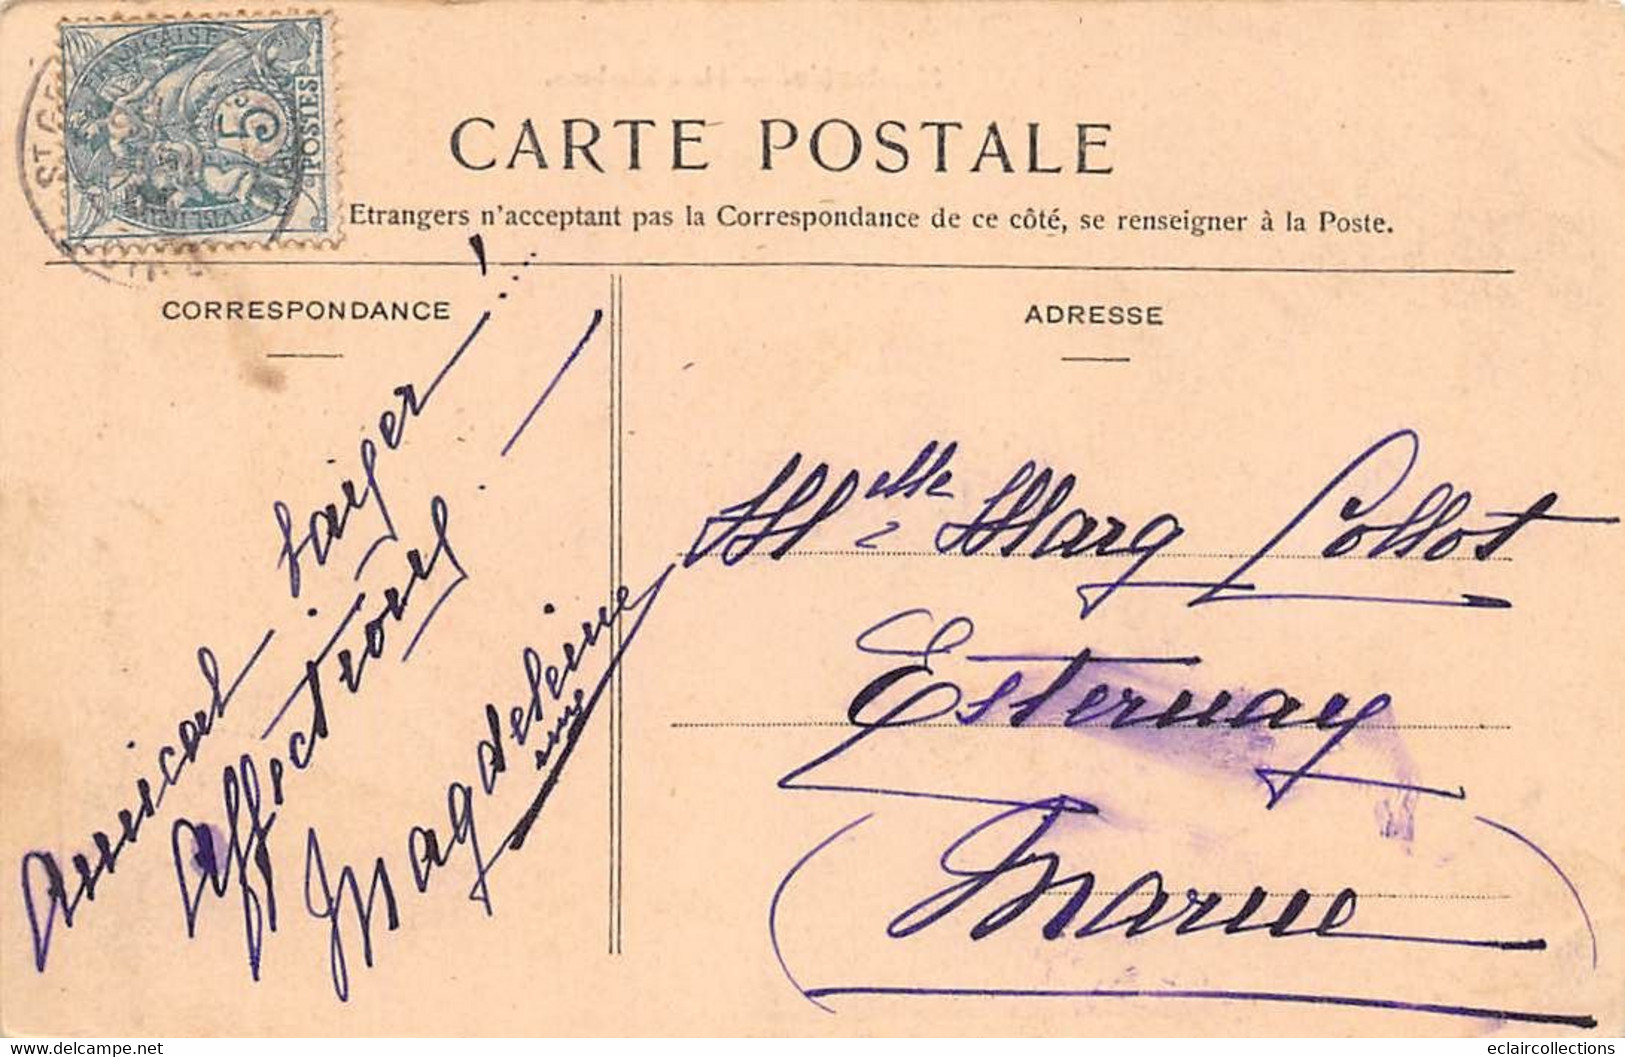 FRANÇAISE
5c
POSTES
CARTE POSTALE
Etrangers n'acceptant pas la Correspondance de ce côté, se renseigner à la Poste.
CORRESPONDANCE
ADRESSE
Affections
Magdeleine
Melle Marg Collot
Esternay
(Marne)
delcampe.net
eclaircollections